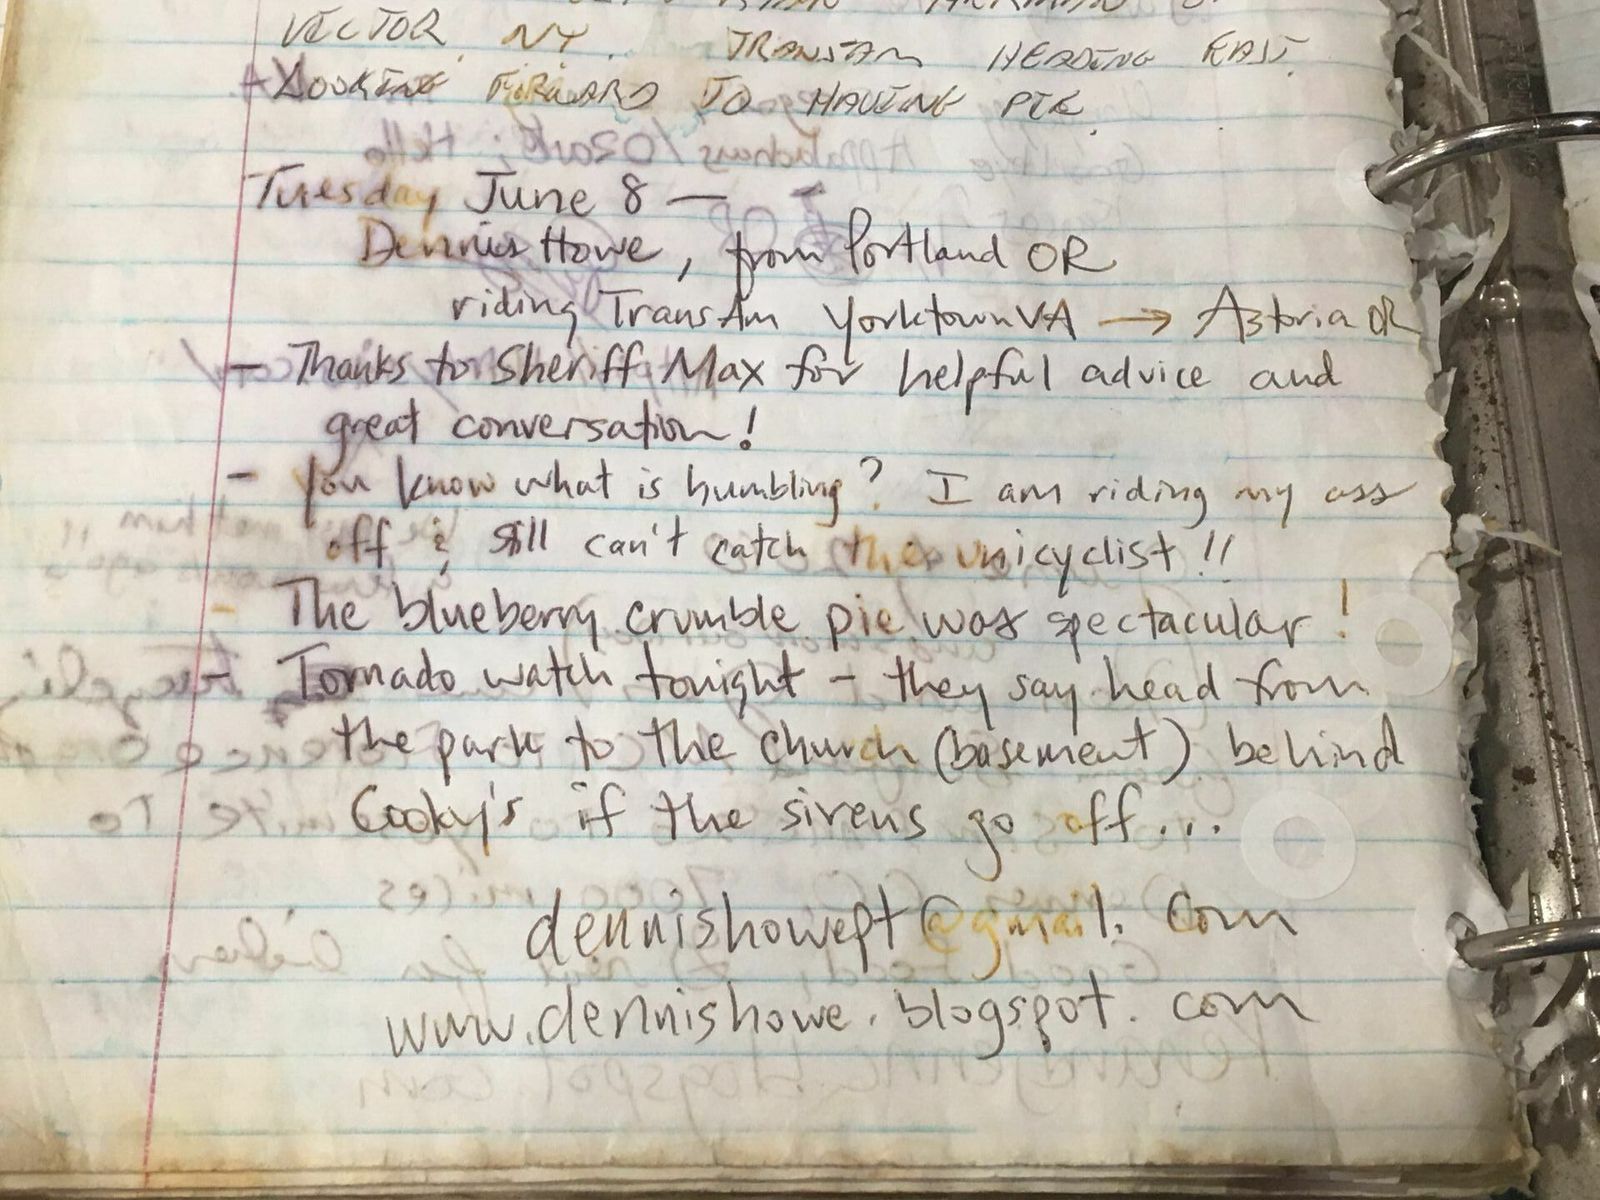 VICTOR, NY. TRANSAM HEADING EAST.
LOOKING FORWARD TO HAVING PIE.
Tuesday June 8 —
Dennis Howe, from Portland OR
riding TransAm Yorktown VA → Astoria OR
- Thanks to Sheriff Max for helpful advice and
great conversation!
- You know what is humbling? I am riding my ass
off & still can't catch the unicyclist!!
- The blueberry crumble pie was spectacular!
- Tornado watch tonight - they say head from
the park to the church (basement) behind
Cooky's if the sirens go off...
dennishowept@gmail.com
www.dennishowe.blogspot.com